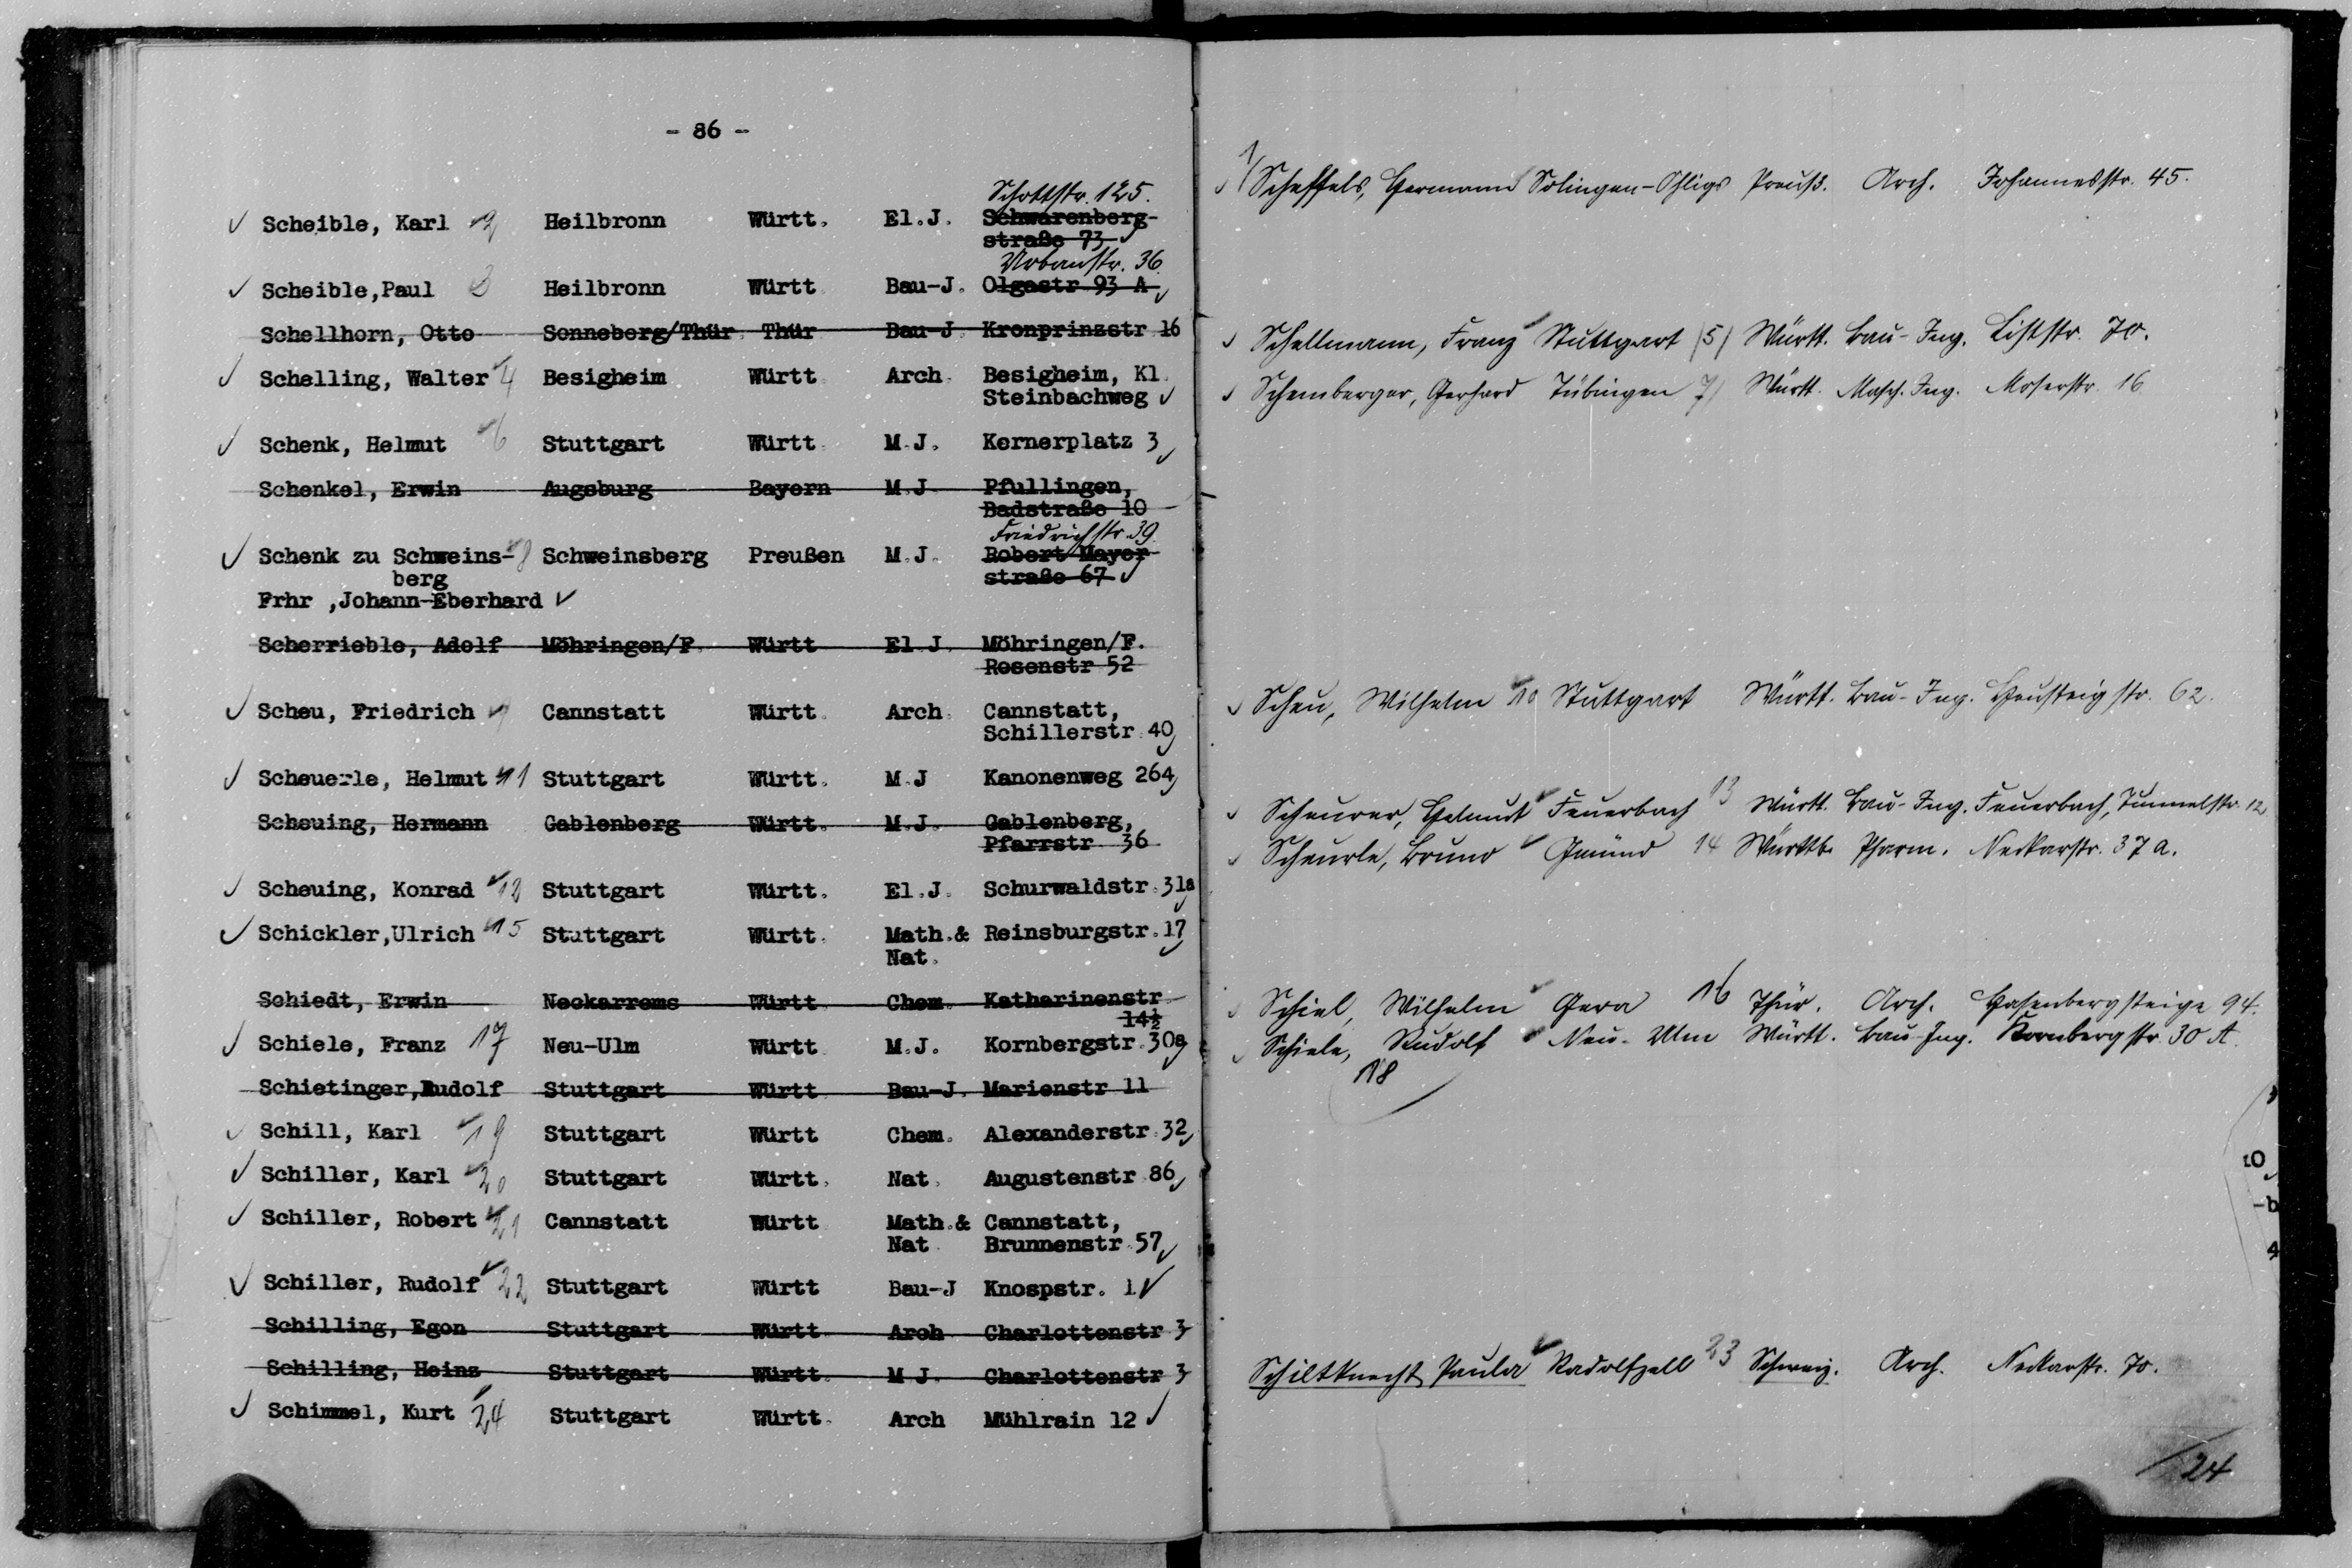 - 86 -
Schottstr. 125.
Scheible, Karl 2 Heilbronn Württ. El.J. Schwarenberg-
straße 73
Urbanstr. 36.
Scheible,Paul 3 Heilbronn Württ. Bau-J. Olgastr. 93 A
Schellhorn, Otto Sonneberg/Thür. Thür. Bau-J. Kronprinzstr. 16
Schelling, Walter 4 Besigheim Württ. Arch. Besigheim, Kl.
Steinbachweg
Schenk, Helmut 6 Stuttgart Württ. M.J. Kernerplatz 3
Schenkel, Erwin Augsburg Bayern M.J. Pfullingen,
Badstraße 10
Friedrichstr. 39.
Schenk zu Schweins- 8 Schweinsberg Preußen M.J. Robert Mayer-
berg straße 67
Frhr.,Johann-Eberhard
Scherrieble, Adolf Möhringen/F. Württ. El.J. Möhringen/F.
Rosenstr. 52
Scheu, Friedrich 9 Cannstatt Württ. Arch. Cannstatt,
Schillerstr. 40
Scheuerle, Helmut 11 Stuttgart Württ. M.J. Kanonenweg 264
Scheuing, Hermann Gablenberg Württ. M.J. Gablenberg,
Pfarrstr. 36
Scheuing, Konrad 12 Stuttgart Württ. El.J. Schurwaldstr. 31a
Schickler,Ulrich 15 Stuttgart Württ. Math.& Reinsburgstr. 17
Nat.
Schiedt, Erwin Neckarrems Württ. Chem. Katharinenstr.
14½
Schiele, Franz 17 Neu-Ulm Württ. M.J. Kornbergstr. 30a
Schietinger,Rudolf Stuttgart Württ. Bau-J. Marienstr. 11
Schill, Karl 19 Stuttgart Württ. Chem. Alexanderstr. 32
Schiller, Karl 20 Stuttgart Württ. Nat. Augustenstr. 86
Schiller, Robert 21 Cannstatt Württ. Math.& Cannstatt,
Nat. Brunnenstr. 57
Schiller, Rudolf 22 Stuttgart Württ. Bau-J. Knospstr. 1
Schilling, Egon Stuttgart Württ. Arch. Charlottenstr. 3
Schilling, Heinz Stuttgart Württ. M.J. Charlottenstr. 3
Schimmel, Kurt 24 Stuttgart Württ. Arch. Mühlrain 12
1/ Scheffels, Hermann Solingen-Ohligs Preuß. Arch. Johannesstr. 45.
Schellmann, Franz Stuttgart /5/ Württ. Bau-Ing. Liststr. 70.
Schemberger, Gerhard Tübingen 7/ Württ. Masch. Ing. Moserstr. 16
Scheu, Wilhelm 10 Stuttgart Württ. Bau-Ing. Heusteigstr. 62.
Scheurer, Helmut Feuerbach 13 Württ. Bau-Ing. Feuerbach, Tunnelstr. 12
Scheurle, Bruno Gmünd 14 Württb. Pharm. Neckarstr. 37a.
Schiel, Wilhelm Gera 16 Thür. Arch. Hasenbergsteige 94.
Schiele, Rudolf Neu-Ulm Württ. Bau-Ing. Kornbergstr. 30 A.
18
Schiltknecht, Paula Radolfzell 23 Schweiz. Arch. Neckarstr. 70.
/24